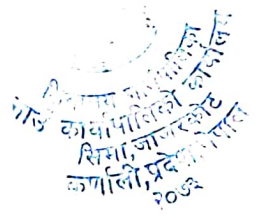 कार्यपालिकाको कार्यालय
सिमा, जाजरकोट
कर्णाली, प्रदेश, नेपाल
२०७३